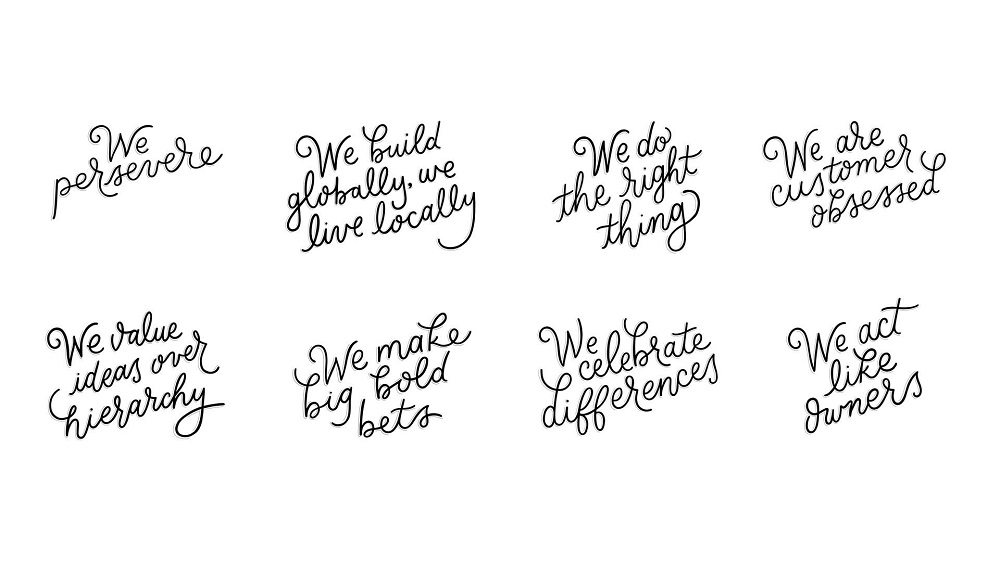 We
persevere
We build
globally, we
live locally
We do
the right
thing
We are
customer
obsessed
We value
ideas over
hierarchy
We make
big bold
bets
We
celebrate
differences
We act
like
owners